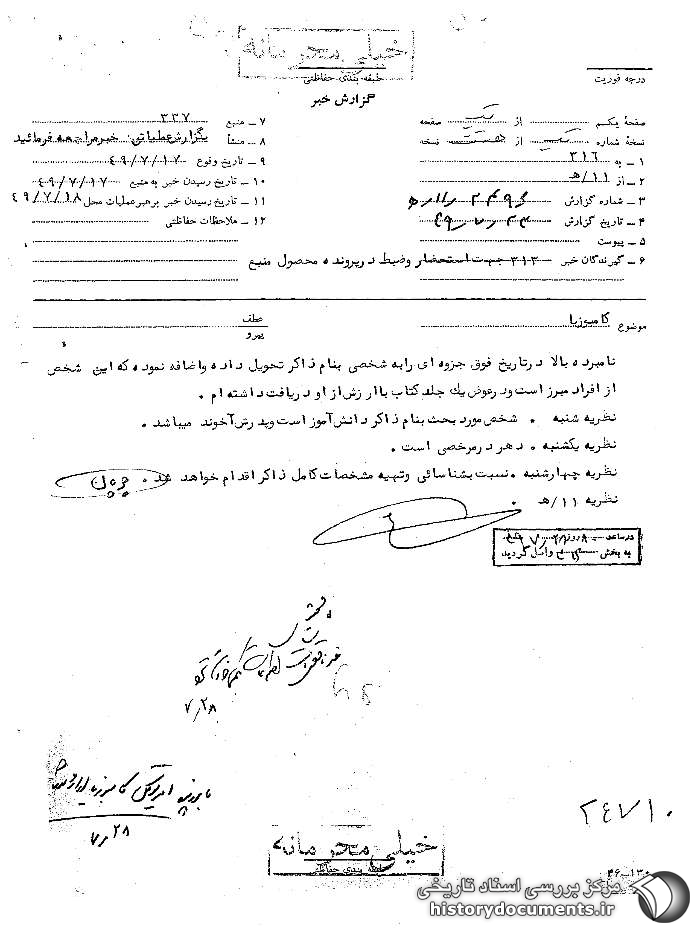 خیلی محرمانه
طبقه بندی حفاظتی
درجه فوریت
گزارش خبر
صفحه یکم از یک صفحه
نسخه شماره یک از هشت نسخه
۱ - به ۳۱۶
۲ - از ۱۱/ه
۳ - شماره گزارش
۴ - تاریخ گزارش
۵ - پیوست
۶ - گیرندگان خبر ۳۱۳ جهت استحضار و ضبط در پرونده محصول منبع
۷ - منبع ۳۳۷
۸ - منشأ بگزارش عملیاتی خبر مراجعه فرمائید
۹ - تاریخ وقوع ۴۹/۷/۱۷
۱۰ - تاریخ رسیدن خبر به منبع ۴۹/۷/۱۷
۱۱ - تاریخ رسیدن خبر برهبر عملیات محل ۴۹/۷/۱۸
۱۲ - ملاحظات حفاظتی
موضوع کامبوزیا
عطف
پیرو
نامبرده بالا در تاریخ فوق جزوه ای را به شخصی بنام ذاکر تحویل داده و اضافه نموده که این شخص
از افراد مبرز است و در عوض یک جلد کتاب با ارزش از او دریافت داشته ام .
نظریه شنبه . شخص مورد بحث بنام ذاکر دانش آموز است و پدرش آخوند میباشد .
نظریه یکشنبه . دهر در مرخصی است .
نظریه چهارشنبه . نسبت بشناسائی و تهیه مشخصات کامل ذاکر اقدام خواهد شد .
نظریه ۱۱/ه .
در ساعت ۸ روز
به بخش واصل گردید
۷/۲۸
۷/۲۸
۲۴۷۱۰
خیلی محرمانه
طبقه بندی حفاظتی
مرکز بررسی اسناد تاریخی
historydocuments.ir